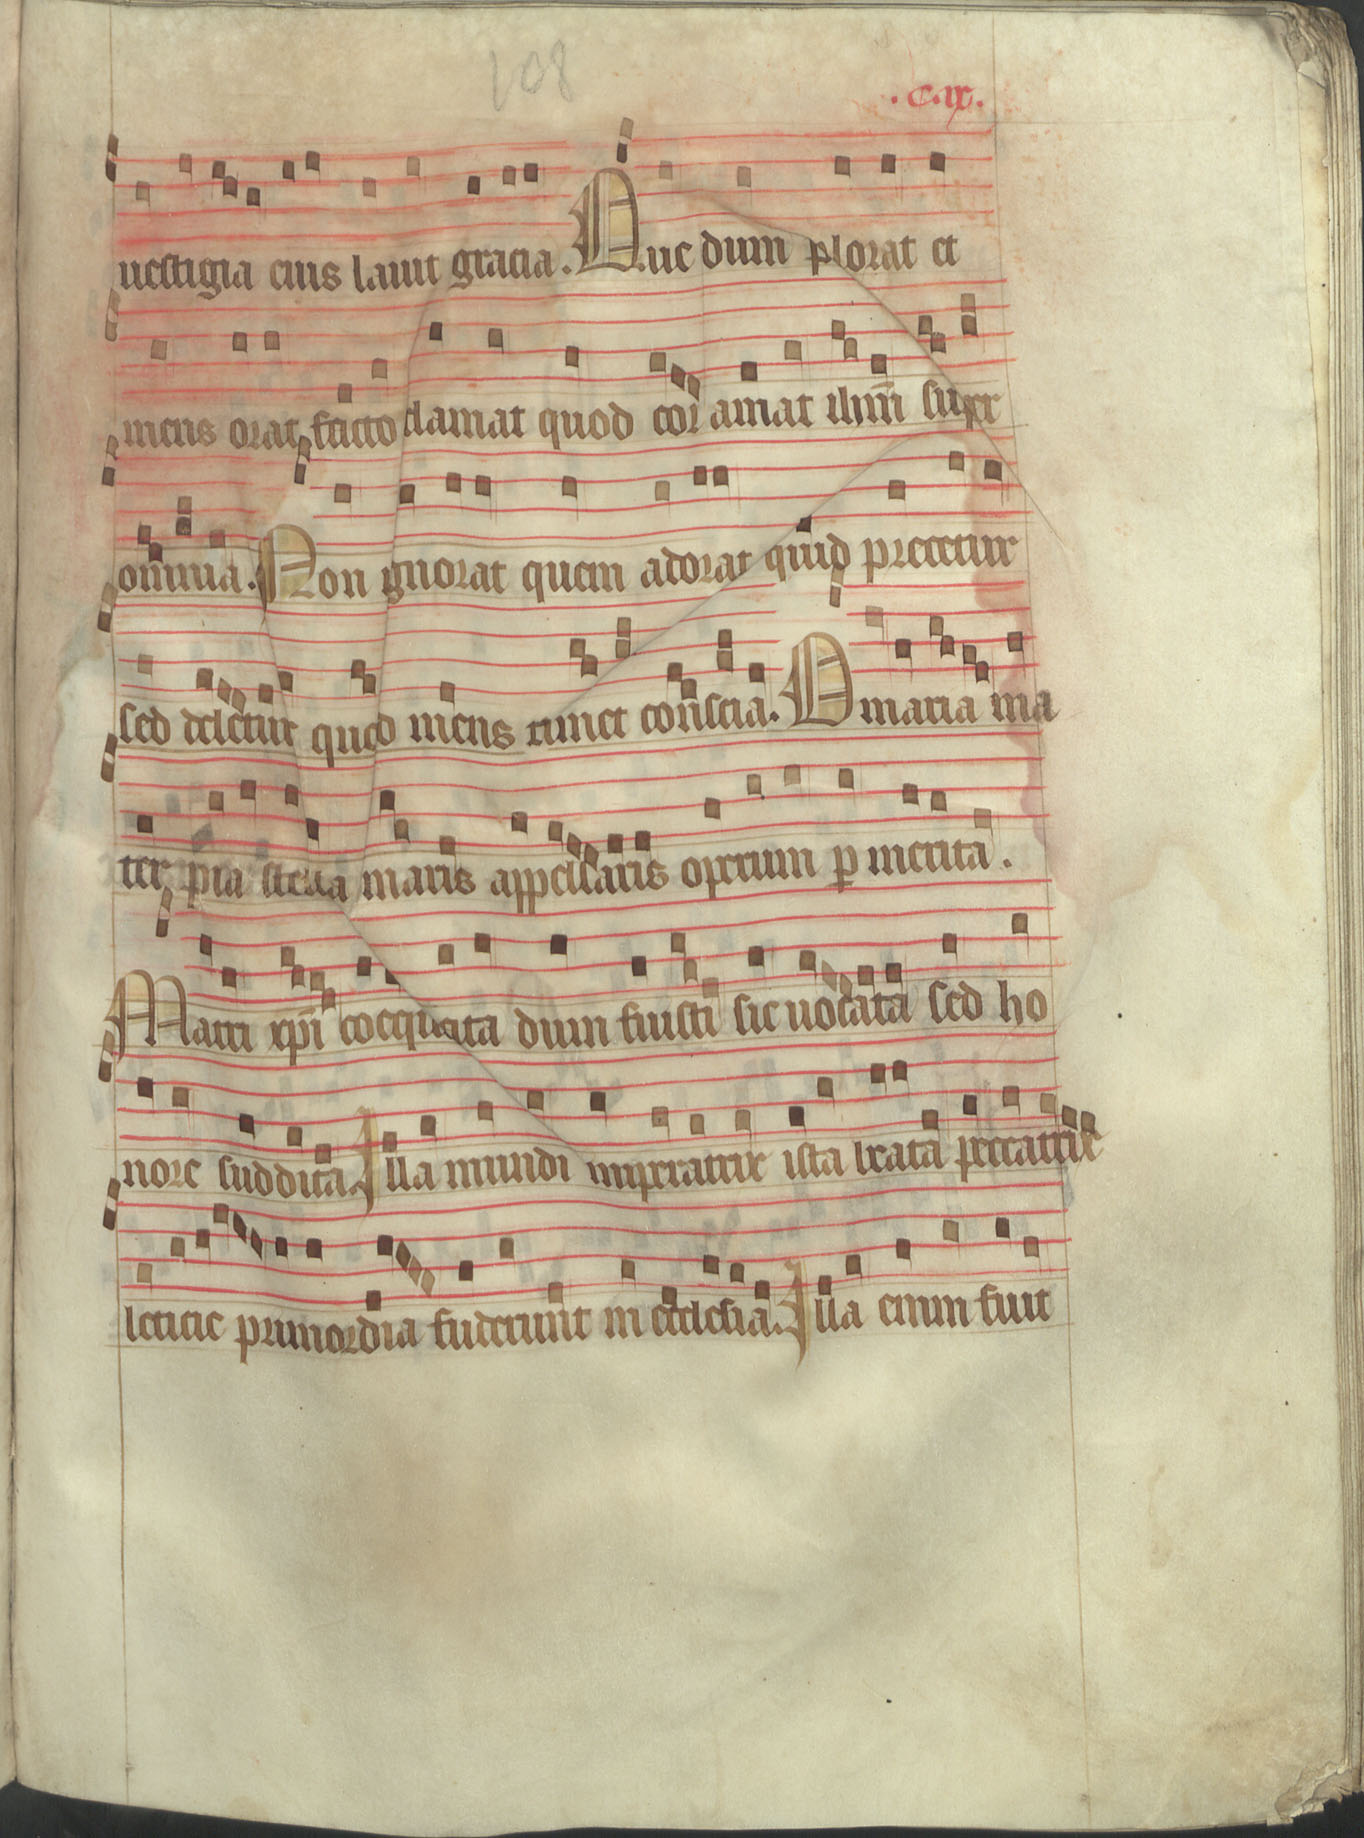 108
.c.ix.
uestigia eius lauit gracia. Huc dum plorat et
mens orat facto clamat quod cor amat ihm̄ super
omnia. Non ignorat quem adorat quid precetur
sed deletur quod mens timet conscia. O maria ma
ter pia stella maris appellaris operum ꝑ merita.
Matri xp̄i coequata dum fuisti sic uocata sed ho
nore subdita. Illa mundi imperatrix ista beata peccatrix
leticie primordia fuderunt in ecclesia. Illa enim fuit